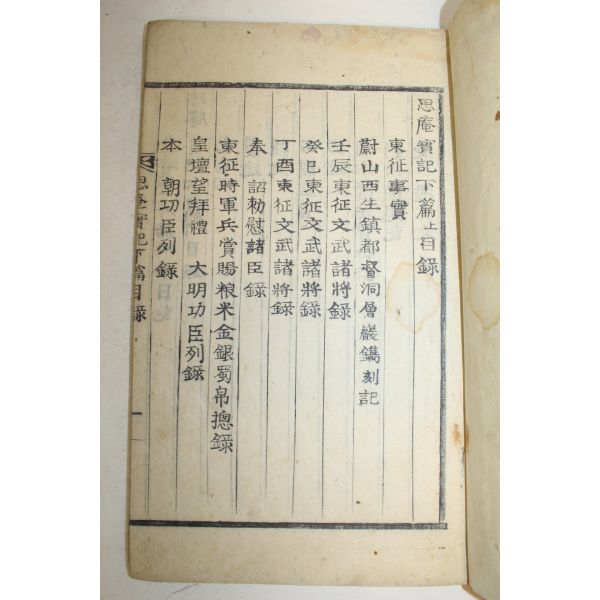 思庵實記下篇上目錄
東征事實
蔚山西生鎮都督洞層巖鐫刻記
壬辰東征文武諸將錄
癸巳東征文武諸將錄
丁酉東征文武諸將錄
奉 詔勅慰諸臣錄
東征時軍兵賞賜粮米金銀蜀帛摠錄
皇壇望拜禮 大明功臣列錄
本 朝功臣列錄
思庵實記下篇目錄 一